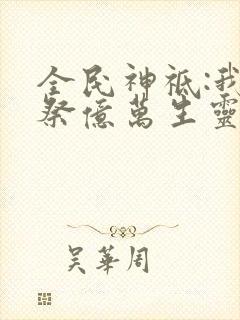 全民神祇:我
祭億萬生靈
吳華周